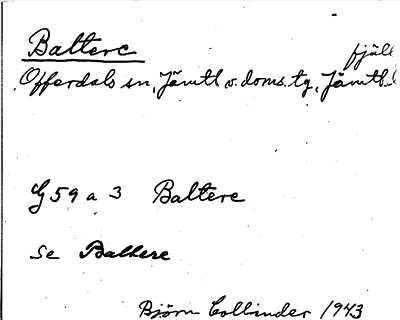 Baltere fjäll
Offerdals sn, Jämtl. v. doms. tg, Jämtl.
G 59 a 3 Baltere
se Balkere
Björn Collinder 1943